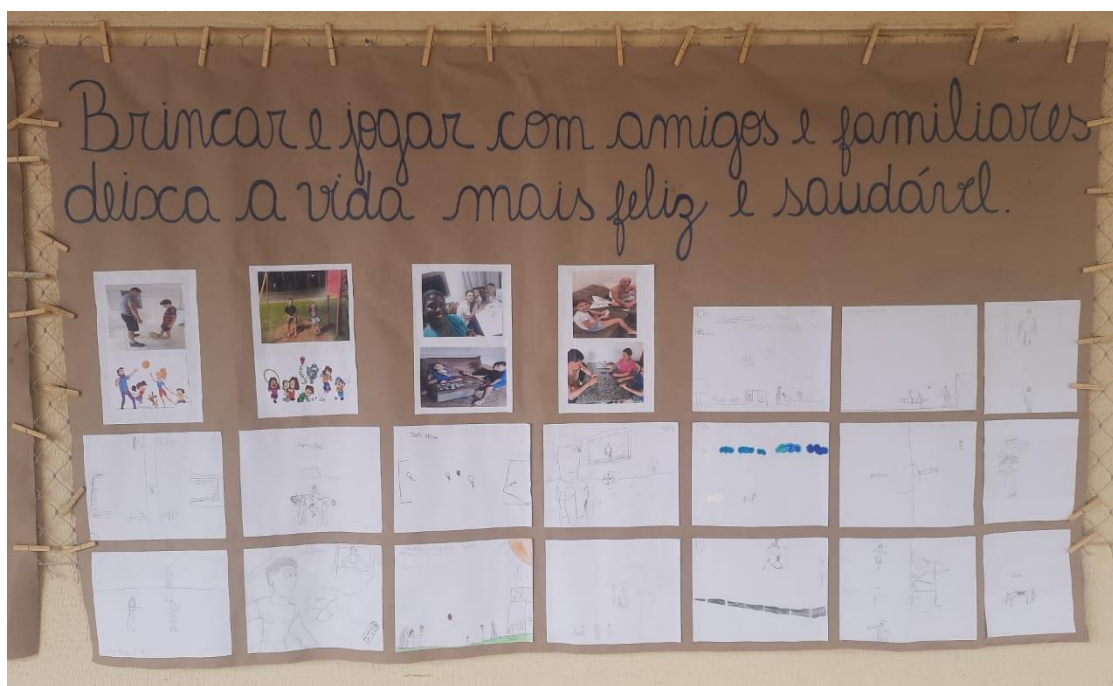 Brincar e jogar com amigos e familiares
deixa a vida mais feliz e saudável.